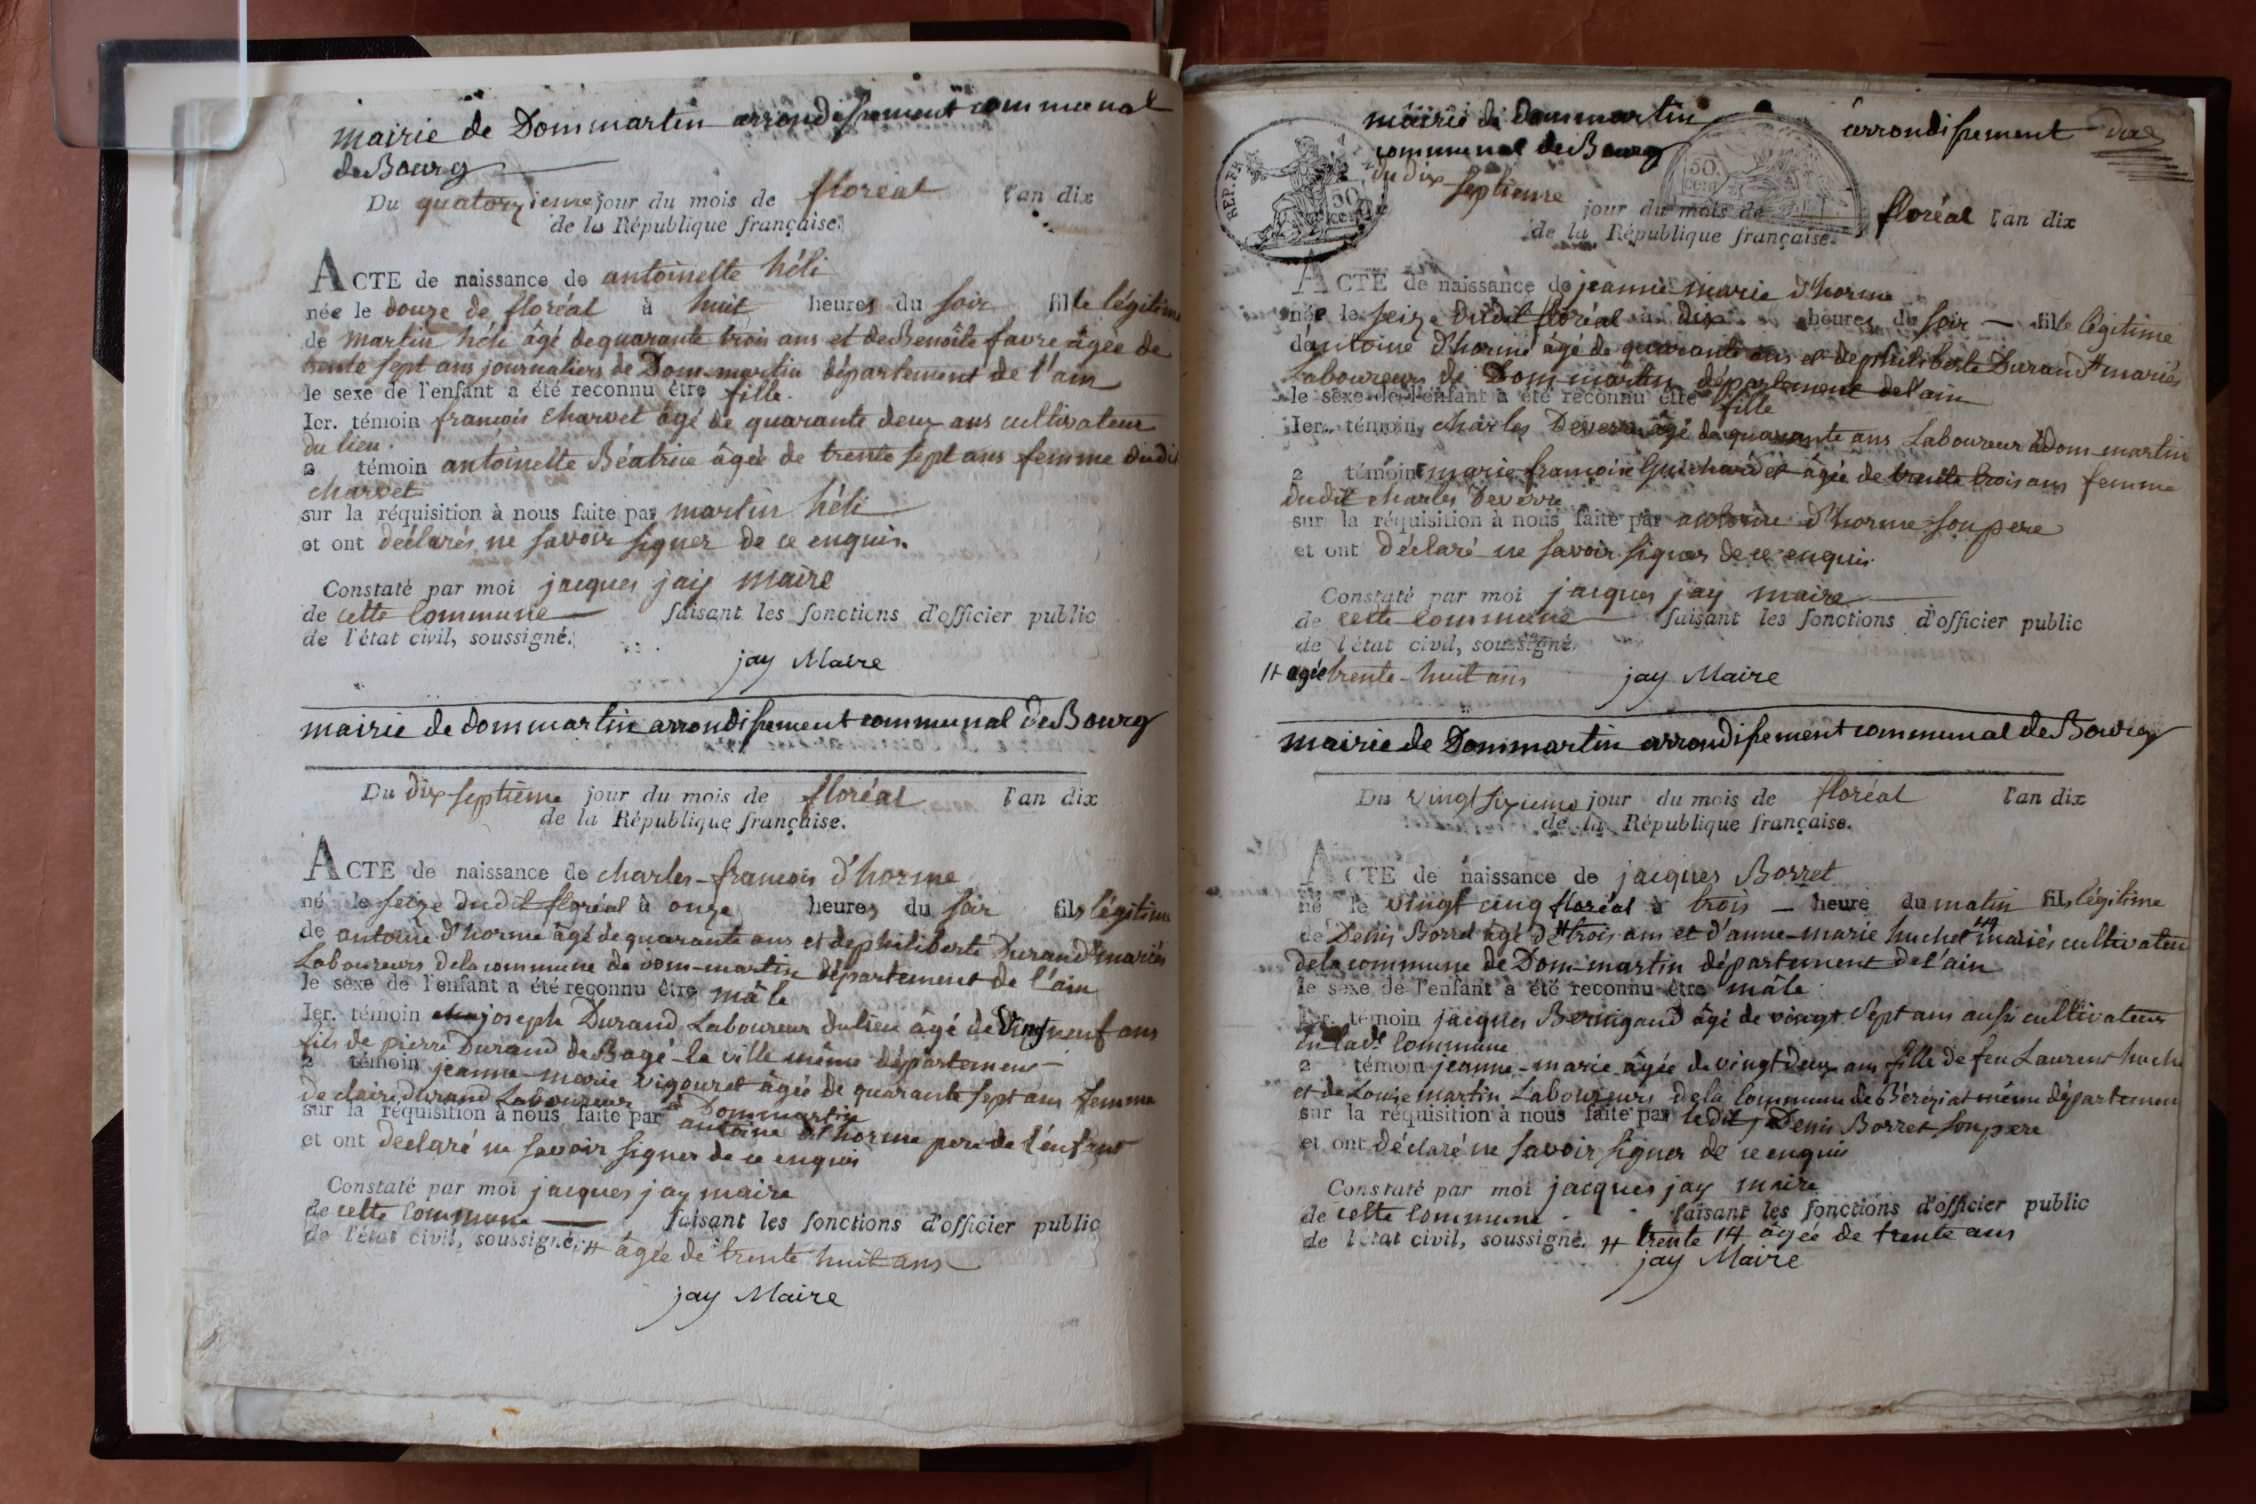 mairie de Dommartin arrondissement communal
de Bourg
Du quatorzieme jour du mois de floréal l'an dix
de la République française.
ACTE de naissance de antoinette héli
née le douze de floréal à huit heures du soir fille légitime
de martin héli âgé de quarante trois ans et de Benoîte favre âgée de
trente sept ans journaliers de Dom-martin département de l'ain
le sexe de l'enfant a été reconnu être fille.
Ier. témoin francois charvet âgé de quarante deux ans cultivateur
du lieu.
2 témoin antoinette Béatrix âgée de trente sept ans femme dudit
charvet
sur la réquisition à nous faite par martin héli
et ont déclarés ne savoir signer de ce enquis.
Constaté par moi jacques jay maire
de cette commune faisant les fonctions d'officier public
de l'état civil, soussigné.
jay Maire
mairie de dommartin arrondissement communal de Bourg
Du dix septième jour du mois de floréal l'an dix
de la République française.
ACTE de naissance de charles-francois d'horme
né le seize dudit floréal à onze heures du soir fils légitime
de antoine d'horme âgé de quarante ans et de philiberte Durand # mariés
Laboureurs de la commune de dom-martin département de l'ain
le sexe de l'enfant a été reconnu être mâle
Ier. témoin joseph Durand Laboureur du lieu âgé de vingt neuf ans
fils de pierre Durand de Bagé-la ville même département
2 témoin jeanne-marie vigouret âgée de quarante sept ans femme
de claire durand Laboureur à Dommartin
sur la réquisition à nous faite par antoine d'horme pere de l'enfant
et ont declaré ne savoir signer de ce enquis
Constaté par moi jacques jay maire
de cette commune faisant les fonctions d'officier public
de l'état civil, soussigné. # âgée de trente huit ans
jay Maire
mairie de dommartin arrondissement
communal de Bourg
REP. FRA
50 cent
50 cent
du dix septieme jour du mois de floréal l'an dix
de la République française.
ACTE de naissance de jeanne-marie d'horme
née le seize dudit floréal à dix heures du soir fille légitime
d'antoine d'horme âgé de quarante ans et de philiberte Durand # mariés
Laboureurs de Dom-martin département de l'ain
le sexe de l'enfant a été reconnu être fille
Ier. témoin charles Deverre âgé de quarante ans Laboureur à Dom-martin
2 témoin marie-francoise Guichardet âgée de trente trois ans femme
dudit charles Deverre
sur la réquisition à nous faite par antoine d'horme son pere
et ont déclaré ne savoir signer de ce enquis
Constaté par moi jacques jay maire
de cette commune faisant les fonctions d'officier public
de l'état civil, soussigné.
# agée trente-huit ans jay Maire
mairie de Dommartin arrondissement communal de Bourg
Du vingt sixieme jour du mois de floréal l'an dix
de la République française.
ACTE de naissance de jacques Borret
né le vingt cinq floréal à trois heure du matin fils légitime
de Denis Borret âgé d # trois ans et d'anne-marie huchet ## mariés cultivateu
de la commune de Dom-martin département de l'ain
le sexe de l'enfant a été reconnu être mâle
Ier. témoin jacques Beringaud âgé de vingt sept ans aussi cultivateur
en lad.e commune
2 témoin jeanne-marie âgée de vingt deux ans fille de feu Laurent huche
et de Louise martin Laboureurs de la commune de Béreziat même départemen
sur la réquisition à nous faite par ledit Denis Borret son pere
et ont déclaré ne savoir signer de ce enquis
Constaté par moi jacques jay maire
de cette commune faisant les fonctions d'officier public
de l'état civil, soussigné. # trente ## âgée de trente ans
jay Maire